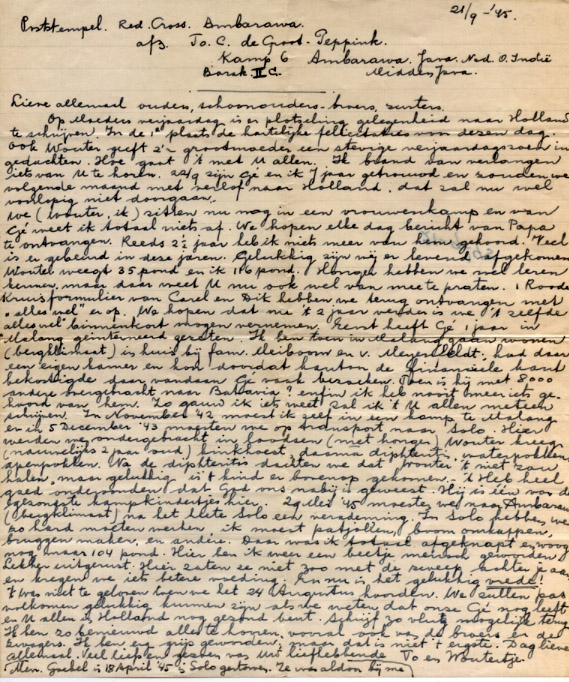 21/9-'45.
Poststempel. Red. Cross. Ambarawa.
afz. To. C. de Groot. Peppink.
Kamp 6 Ambarawa. Java. Ned. O. Indië
Barak II C. Midden Java.
Lieve allemaal ouders, schoonouders. broers, zusters.
Op Moeders verjaardag is er plotseling gelegenheid naar Holland
te schrijven. In de 1e plaats de hartelijke felicitaties voor dezen dag.
Ook Wouter geeft z'n grootmoeder een stevige verjaardagszoen in
gedachten. Hoe gaat 't met U allen. Ik brand van verlangen
iets van U te horen. zijn Gé en ik 7 jaar getrouwd en zouden we
volgende maand met verlof naar Holland, dat zal nu wel
voorlopig niet doorgaan.
We (Wouter, ik) zitten nu nog in een vrouwenkamp en van
Gé weet ik totaal niets af. We hopen elke dag bericht van Papa
te ontvangen. Reeds 2½ jaar heb ik niets meer van hem gehoord. Veel
is er gebeurd in deze jaren. Gelukkig zijn wij er levend afgekomen
Wouter weegt 35 pond en ik 116 pond. Honger hebben we wel leren
kennen, maar daar weet U nu ook wel van mee te praten. 1 Roode
Kruisformulier van Carel en Dit hebben we terug ontvangen met
"alles wel" er op. We hopen dat nu 't 2 jaar verder is we 't zelfde
"alles wel" binnenkort mogen vernemen. Eerst heeft Gé 1 jaar in
Malang geïnterneerd gezeten. Ik ben toen in Malang gaan wonen
(bergklimaat) in huis bij fam. Meiboom en v. had daar
een eigen kamer en kon doordat kanton de financieele kant
bekostigde daar vandaan Gé vaak bezoeken. Toen is hij met 8000
andere overgebracht naar Batavia? enfin ik heb nooit meer iets ge-
hoord van hem. Zo gauw ik iets weet zal ik 't U allen meteen
schrijven. In November '42 moest ik zelf in een kamp te Malang
en in 5 December '43 moesten we op transport naar Solo. Hier
werden wij ondergebracht in loodsen (met honger) Wouter kreeg
(nauwelijks 2 jaar oud) kinkhoest, daarna diphteritis, waterpokken,
apenpokken. Na de diphteritis dachten we dat Wouter 't niet zou
halen, maar gelukkig is 't kind er bovenop gekomen. 't Heb heel
goed ondervonden dat God ons nabij is geweest. Hij is één van de
kampkindertjes hier. '45 moesten we naar Ambarawa
(bergklimaat) na het hete Solo een verademing. In Solo hebben we
zo hard moeten werken. ik moest patjollen, boom omkappen,
bruggen maken, en andere. Daar was ik totaal afgetobt en woog
nog maar 104 pond. Hier ben ik weer een beetje mensch geworden
Lekker uitgerust. Hier zaten ze niet zoo met de zweep achter je aan
en kregen we iets betere voeding. En nu is het gelukkig vrede!
't Was niet te geloven toen we het 24 Augustus hoorden. We zullen pas
volkomen gelukkig kunnen zijn als we weten dat onze Gé nog leeft
en U allen in Holland nog gezond bent. Schrijf zo vlug mogelijk terug
Ik ben zo benieuwd alles te horen, vooral ook van de broers en de
zwagers. Ik ben wat grijs geworden, maar dat is niet 't ergste. Dag lieve
allemaal. Veel liefs en gezoen van Uw liefhebbende To en Woutertje.
Men. Goebel is 18 April '45 in Solo gestorven. Ze was aldoor bij me